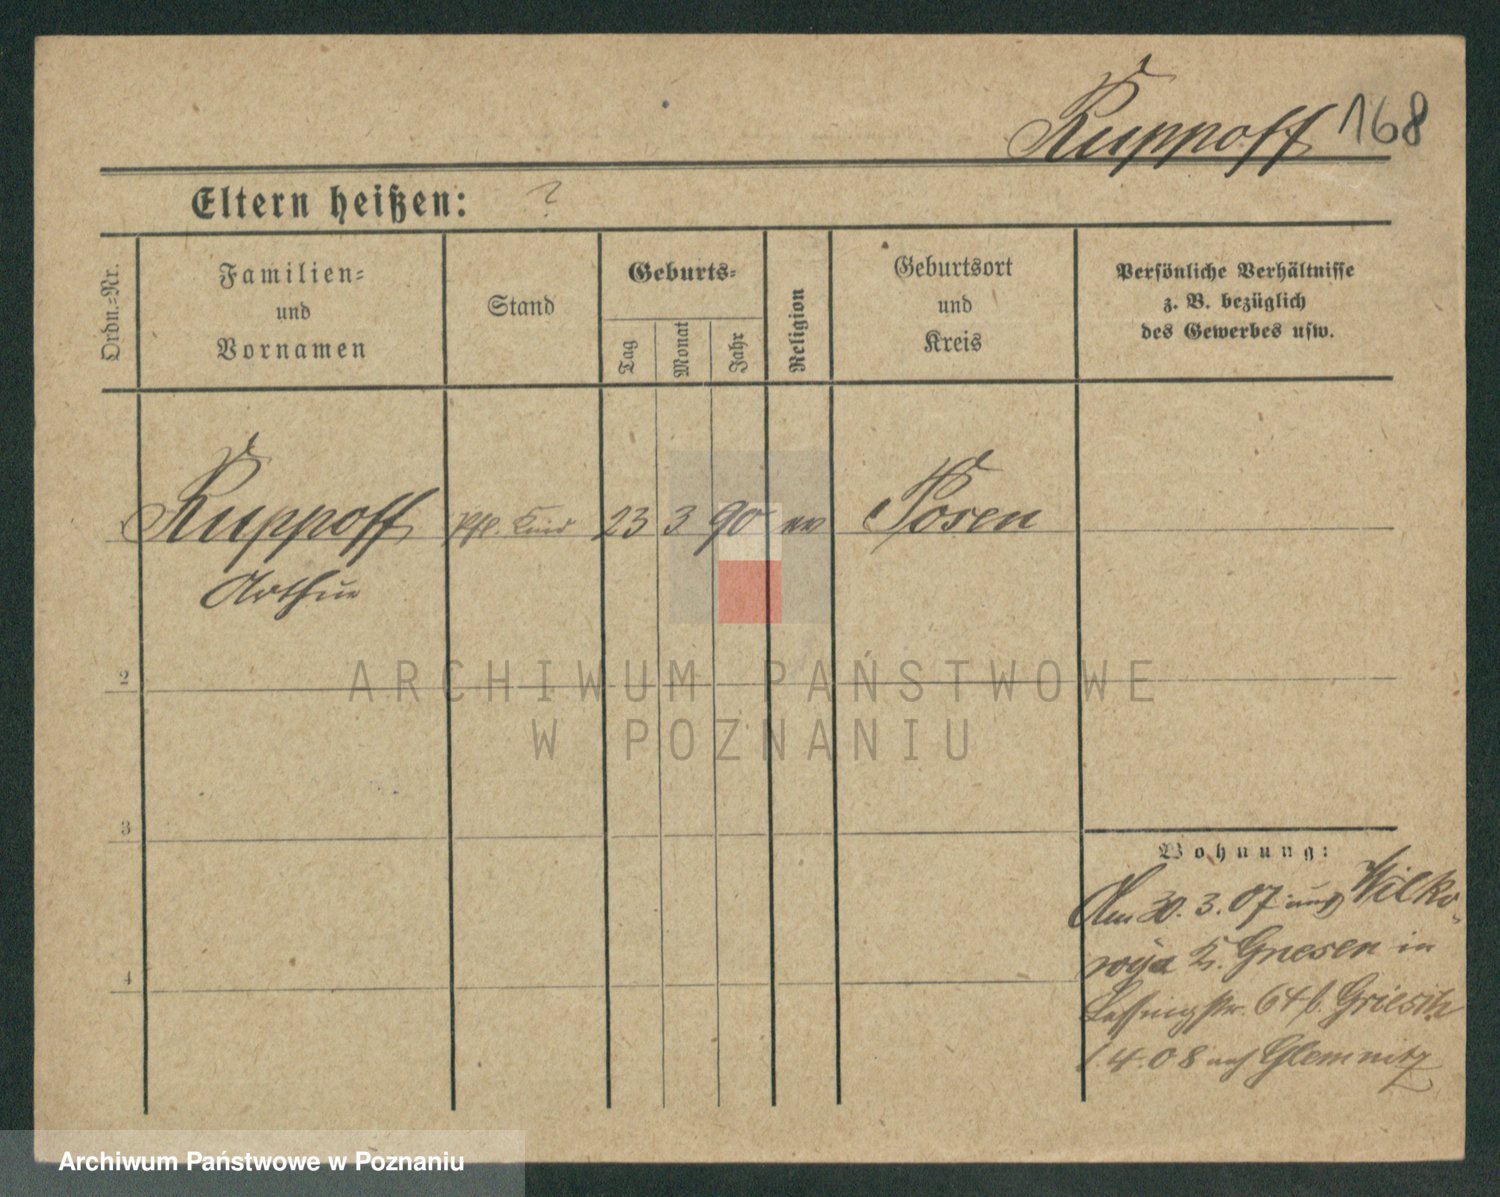 Ruppoff 168
Eltern heißen: ?
Ordn.=Nr.
Familien=
und
Vornamen
Stand
Geburts=
Tag
Monat
Jahr
Religion
Geburtsort
und
Kreis
Persönliche Verhältnisse
z. B. bezüglich
des Gewerbes usw.
Ruppoff 23 3 90 ev Posen
Arthur
2
3
4
Wohnung:
Am 30.3.07 aus Wilko-
wija K. Gnesen in
Lessingstr. 6
1.4.08 nach
ARCHIWUM PAŃSTWOWE
W POZNANIU
Archiwum Państwowe w Poznaniu